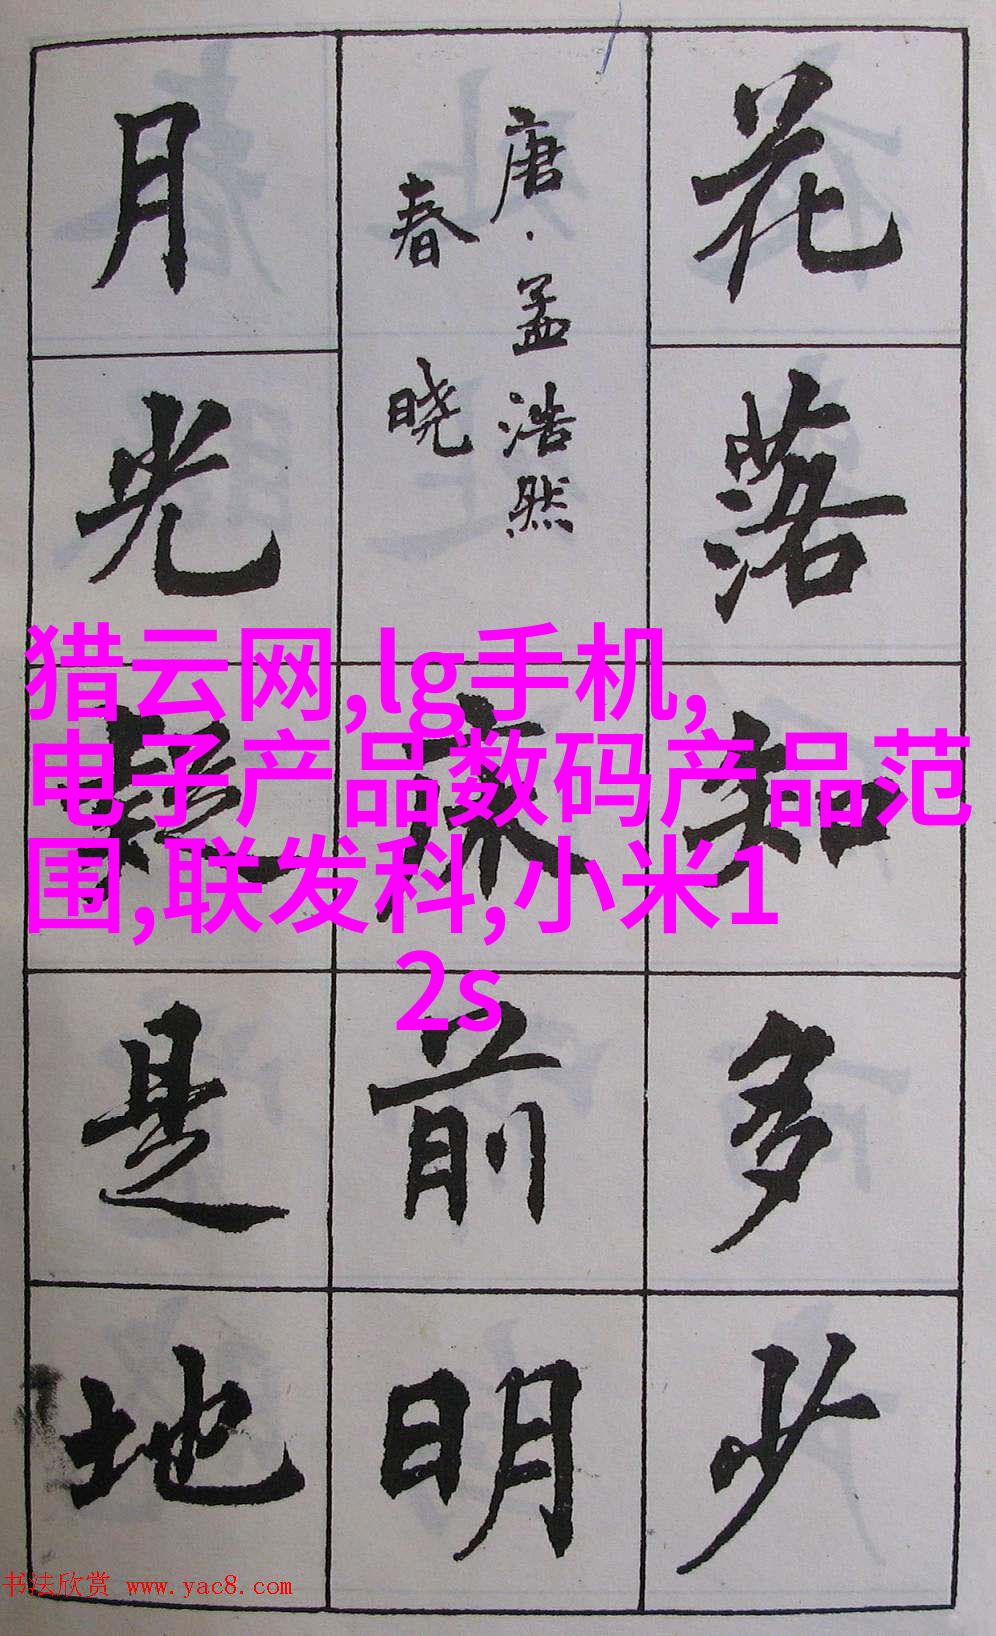 花落知多少
唐·孟浩然
春晓
床前明
月光疑是地
猎云网,lg手机,
电子产品数码产品范
围,联发科,小米1
2s
书法欣赏 www.yac8.com